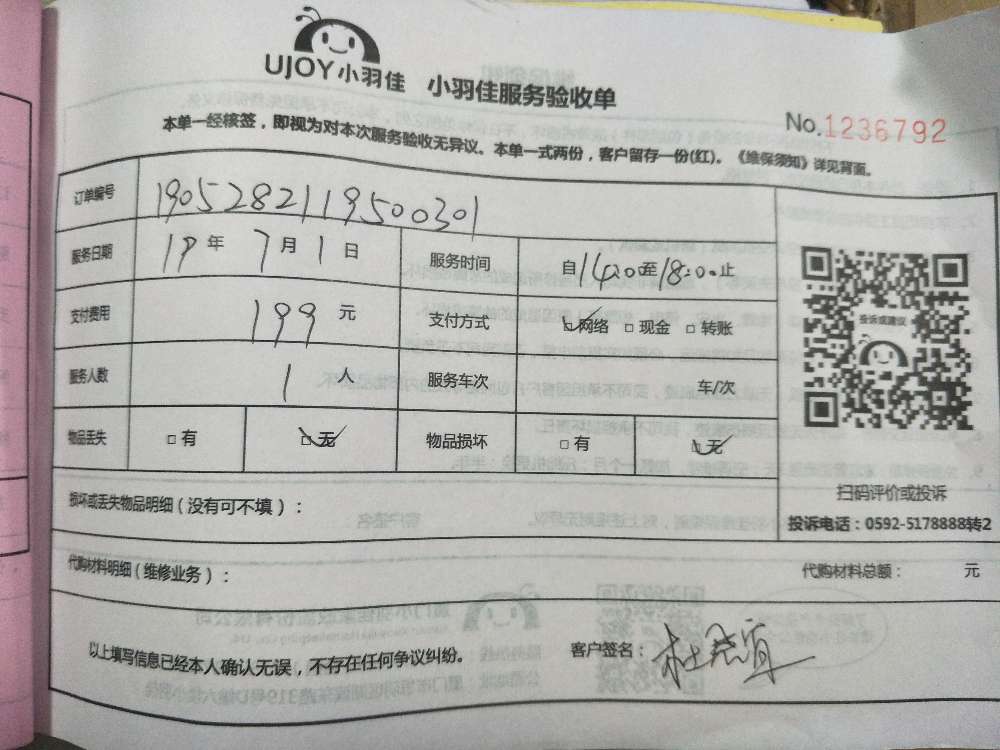 UJOY小羽佳 小羽佳服务验收单
No.1236792
本单一经核签，即视为对本次服务验收无异议。本单一式两份，客户留存一份(红)。《维保须知》详见背面。
订单编号 1905282119500301
服务日期 19年7月1日 服务时间 自14:20至18:20止
支付费用 199元 支付方式 ☑网络 □现金 □转账
投诉或建议
服务人数 1人 服务车次 车/次
物品丢失 □有 ☑无 物品损坏 □有 ☑无
扫码评价或投诉
损坏或丢失物品明细（没有可不填）：
投诉电话：0592-5178888转2
代购材料明细（维修业务）：
代购材料总额： 元
以上填写信息已经本人确认无误，不存在任何争议纠纷。
客户签名：